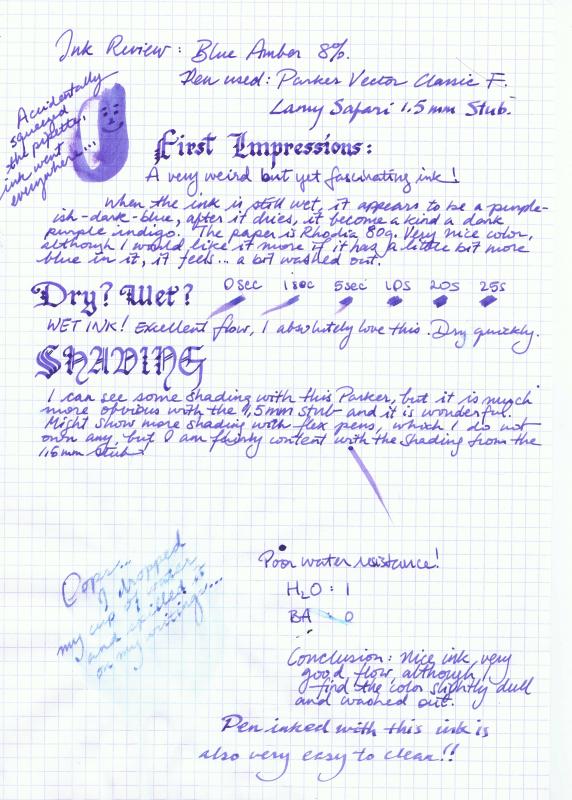 Ink Review : Blue Amber 8%.
Pen used: Parker Vector Classic F.
Lamy Safari 1.5 mm Stub.
Accidentally
squeezed
the pipette,
ink went
everywhere...
First Impressions:
A very weird but yet fascinating ink!
When the ink is still wet, it appears to be a purple-
ish-dark-blue, after it dries, it become a kind a dark
purple indigo. The paper is Rhodia 80g. Very nice color,
although I would like it more if it has a little bit more
blue in it, it feels... a bit washed out.
Dry? Wet? 0sec 1sec 5sec 10s 20s 25s
WET INK! Excellent flow, I absolutely love this. Dry quickly.
SHADING
I can see some shading with this Parker, but it is much
more obvious with the 1,5mm stub and it is wonderful.
Might show more shading with flex pens, which I do not
own any, but I am fairly content with the shading from the
1,5mm stub
Oops...
I dropped
my cup of water
and spilled it
on my writings...
Poor water resistance!
H2O : 1
BA : 0
Conclusion: Nice ink, very
good flow, although I
find the color slightly dull
and washed out.
Pen inked with this ink is
also very easy to clean!!